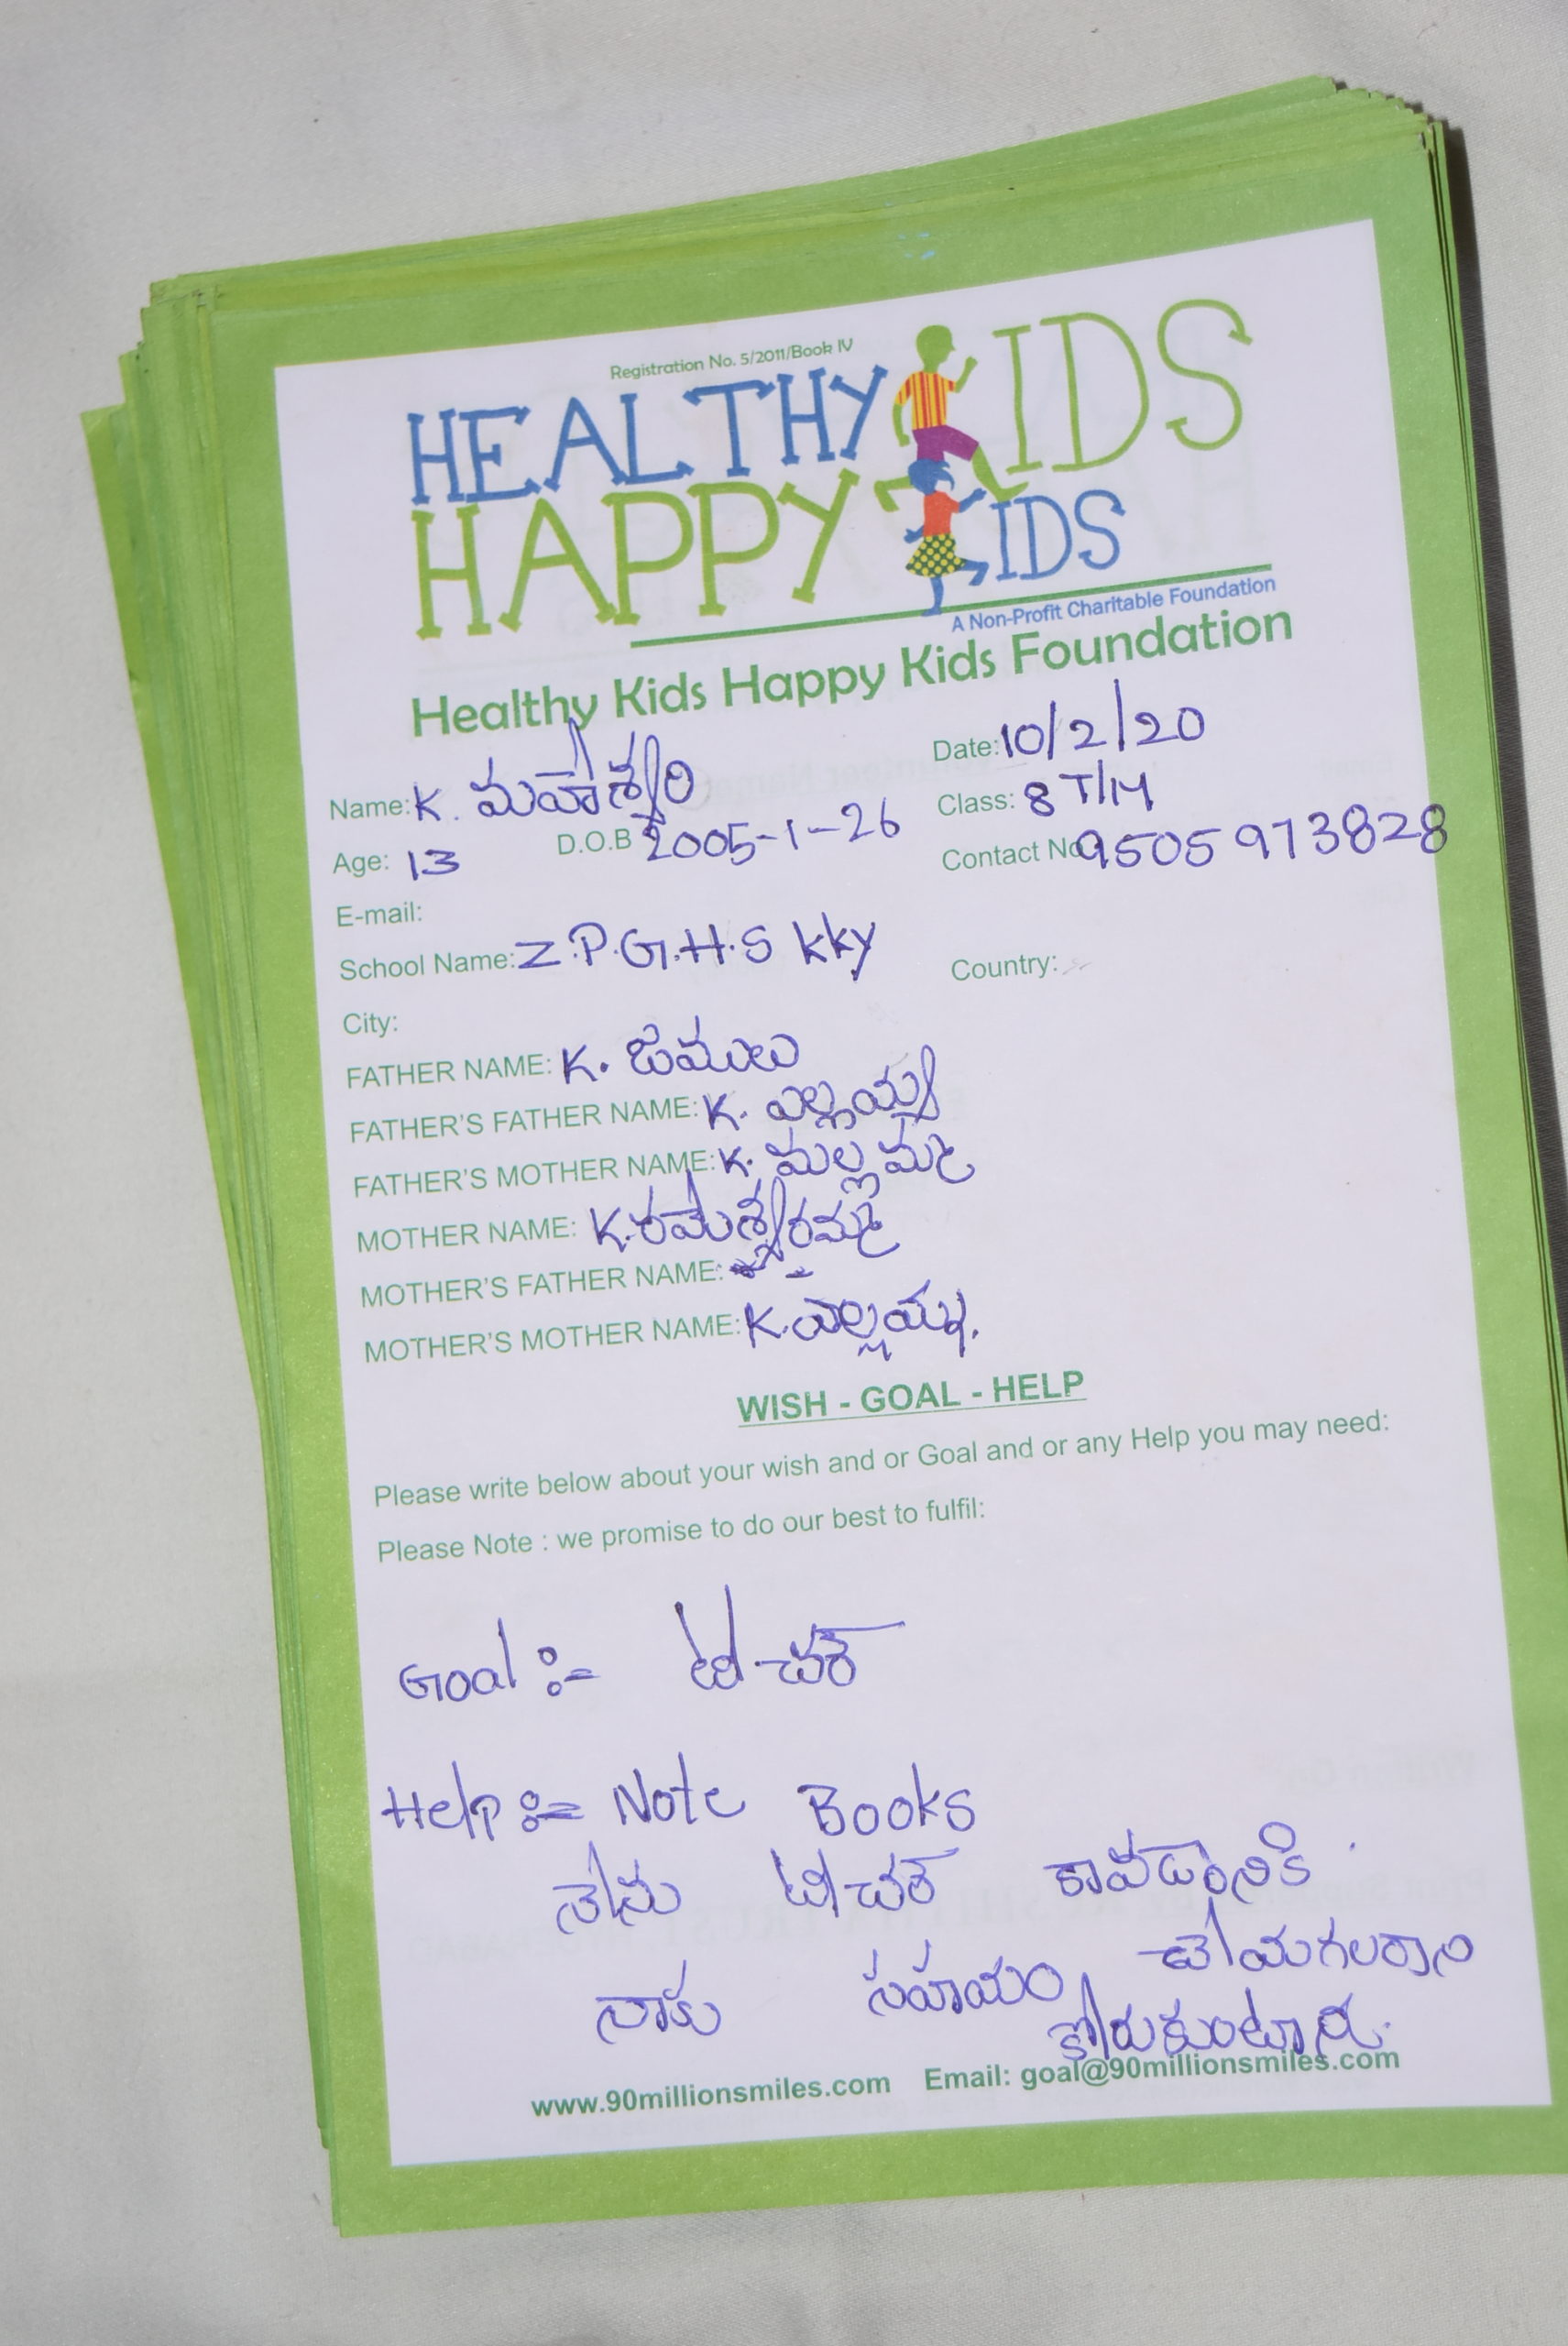 Registration No. 5/2011/Book IV
HEALTHY KIDS
HAPPY KIDS
A Non-Profit Charitable Foundation
Healthy Kids Happy Kids Foundation
Date: 10/2/20
Name: K. మహేశ్వరి
Class: 8 T/M
Age: 13 D.O.B 2005-1-26
Contact No 9505973828
E-mail:
School Name: Z.P.G.H.S kky
Country:
City:
FATHER NAME: K. జములు
FATHER'S FATHER NAME: K. ఎల్లయ్య
FATHER'S MOTHER NAME: K. మల్లమ్మ
MOTHER NAME: K. రామేశ్వరమ్మ
MOTHER'S FATHER NAME: -
MOTHER'S MOTHER NAME: K.
WISH - GOAL - HELP
Please write below about your wish and or Goal and or any Help you may need:
Please Note : we promise to do our best to fulfil:
Goal :- టీచర్
Help :- Note Books
నేను టీచర్ కావడానికి
నాకు సహయం చేయగలరాని
కోరుకుంటాన్న.
www.90millionsmiles.com Email: goal@90millionsmiles.com